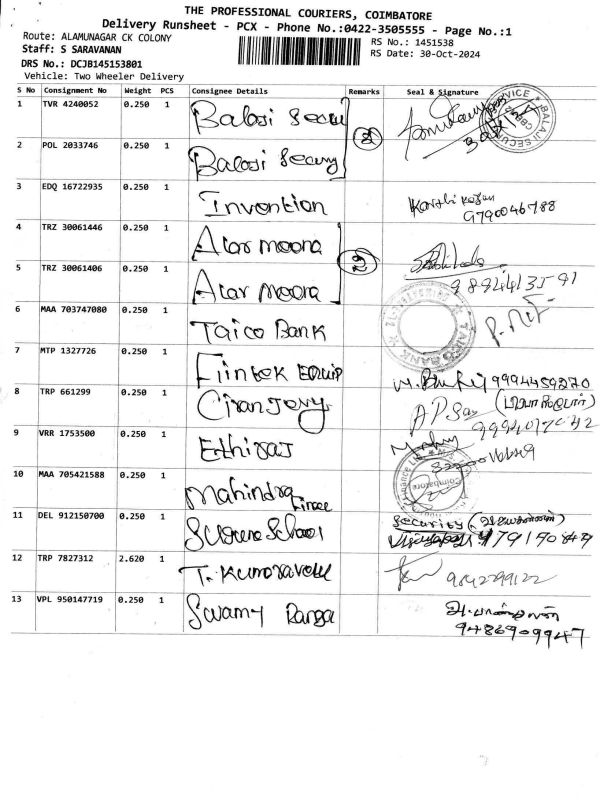 THE PROFESSIONAL COURIERS, COIMBATORE
Delivery Runsheet - PCX - Phone No.:0422-3505555 - Page No.:1
Route: ALAMUNAGAR CK COLONY
RS No.: 1451538
Staff: S SARAVANAN
RS Date: 30-Oct-2024
DRS No.: DCJB145153801
Vehicle: Two Wheeler Delivery
S No Consignment No Weight PCS Consignee Details Remarks Seal & Signature
1 TVR 4240052 0.250 1 Balaji
2 POL 2033746 0.250 1 Balaji
3 EDQ 16722935 0.250 1 Invention
9790046788
4 TRZ 30061446 0.250 1 Alar moora
5 TRZ 30061406 0.250 1 Alar moora
9894413591
6 MAA 703747080 0.250 1 Taico Bank
7 MTP 1327726 0.250 1 Fintek Equip
9994459270
8 TRP 661299 0.250 1
9 VRR 1753500 0.250 1 Ethiraj
10 MAA 705421588 0.250 1 Mahindra
Coimbatore
11 DEL 912150700 0.250 1 Suguna School Security
12 TRP 7827312 2.620 1 T.
9842299122
13 VPL 950147719 0.250 1 Swamy Ranga
9486909947